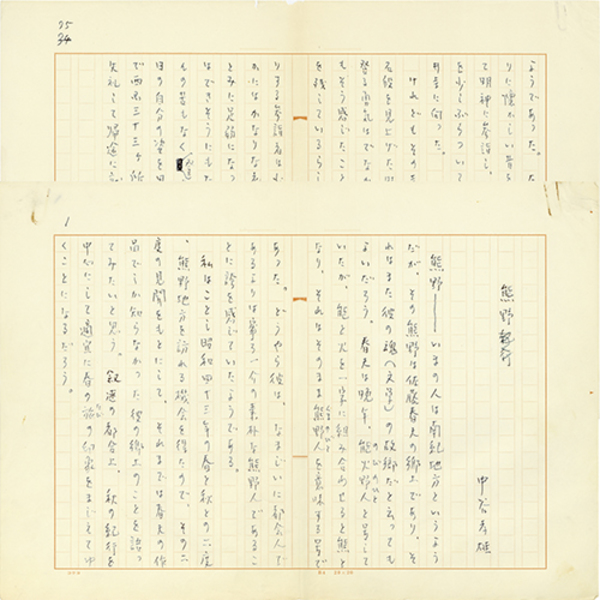 75
34
ようであった。
て明神に参詣し、
を少しぶらついて
けれどもその
石段を見上げた
登る勇気はでなか
もそう感じたこ
を残しているらし
りする参詣者は
かたはかなりな
とみた足弱になっ
はできそうにも
もの苦もなく
自分の姿を
で西国三十三ヶ所
失礼して帰途に
1
熊野紀行
中谷孝雄
熊野――いまの人は南紀地方というよう
だが、その熊野は佐藤春夫の郷土であり、そ
れはまた彼の魂(文学)の故郷だと云っても
よいだろう。春夫は晩年、能火野人と号して
いたが、能と火を一字に組み合わせると熊と
なり、それはそのまま熊野人を意味する号で
あった。どうやら彼は、なまじいに都会人で
あるよりは寧ろ一介の素朴な熊野人であるこ
とに誇を感じていたようである。
私はことし昭和四十三年の春と秋との二度
、熊野地方を訪れる機会を得たので、その二
度の見聞をもとにして、それまで春夫の作
品でしか知らなかった彼の郷土のことを語っ
てみたいと思う。叙述の都合上、秋の紀行を
中心にして適宜に春の旅の印象をまじえてゆ
くことになるだろう。